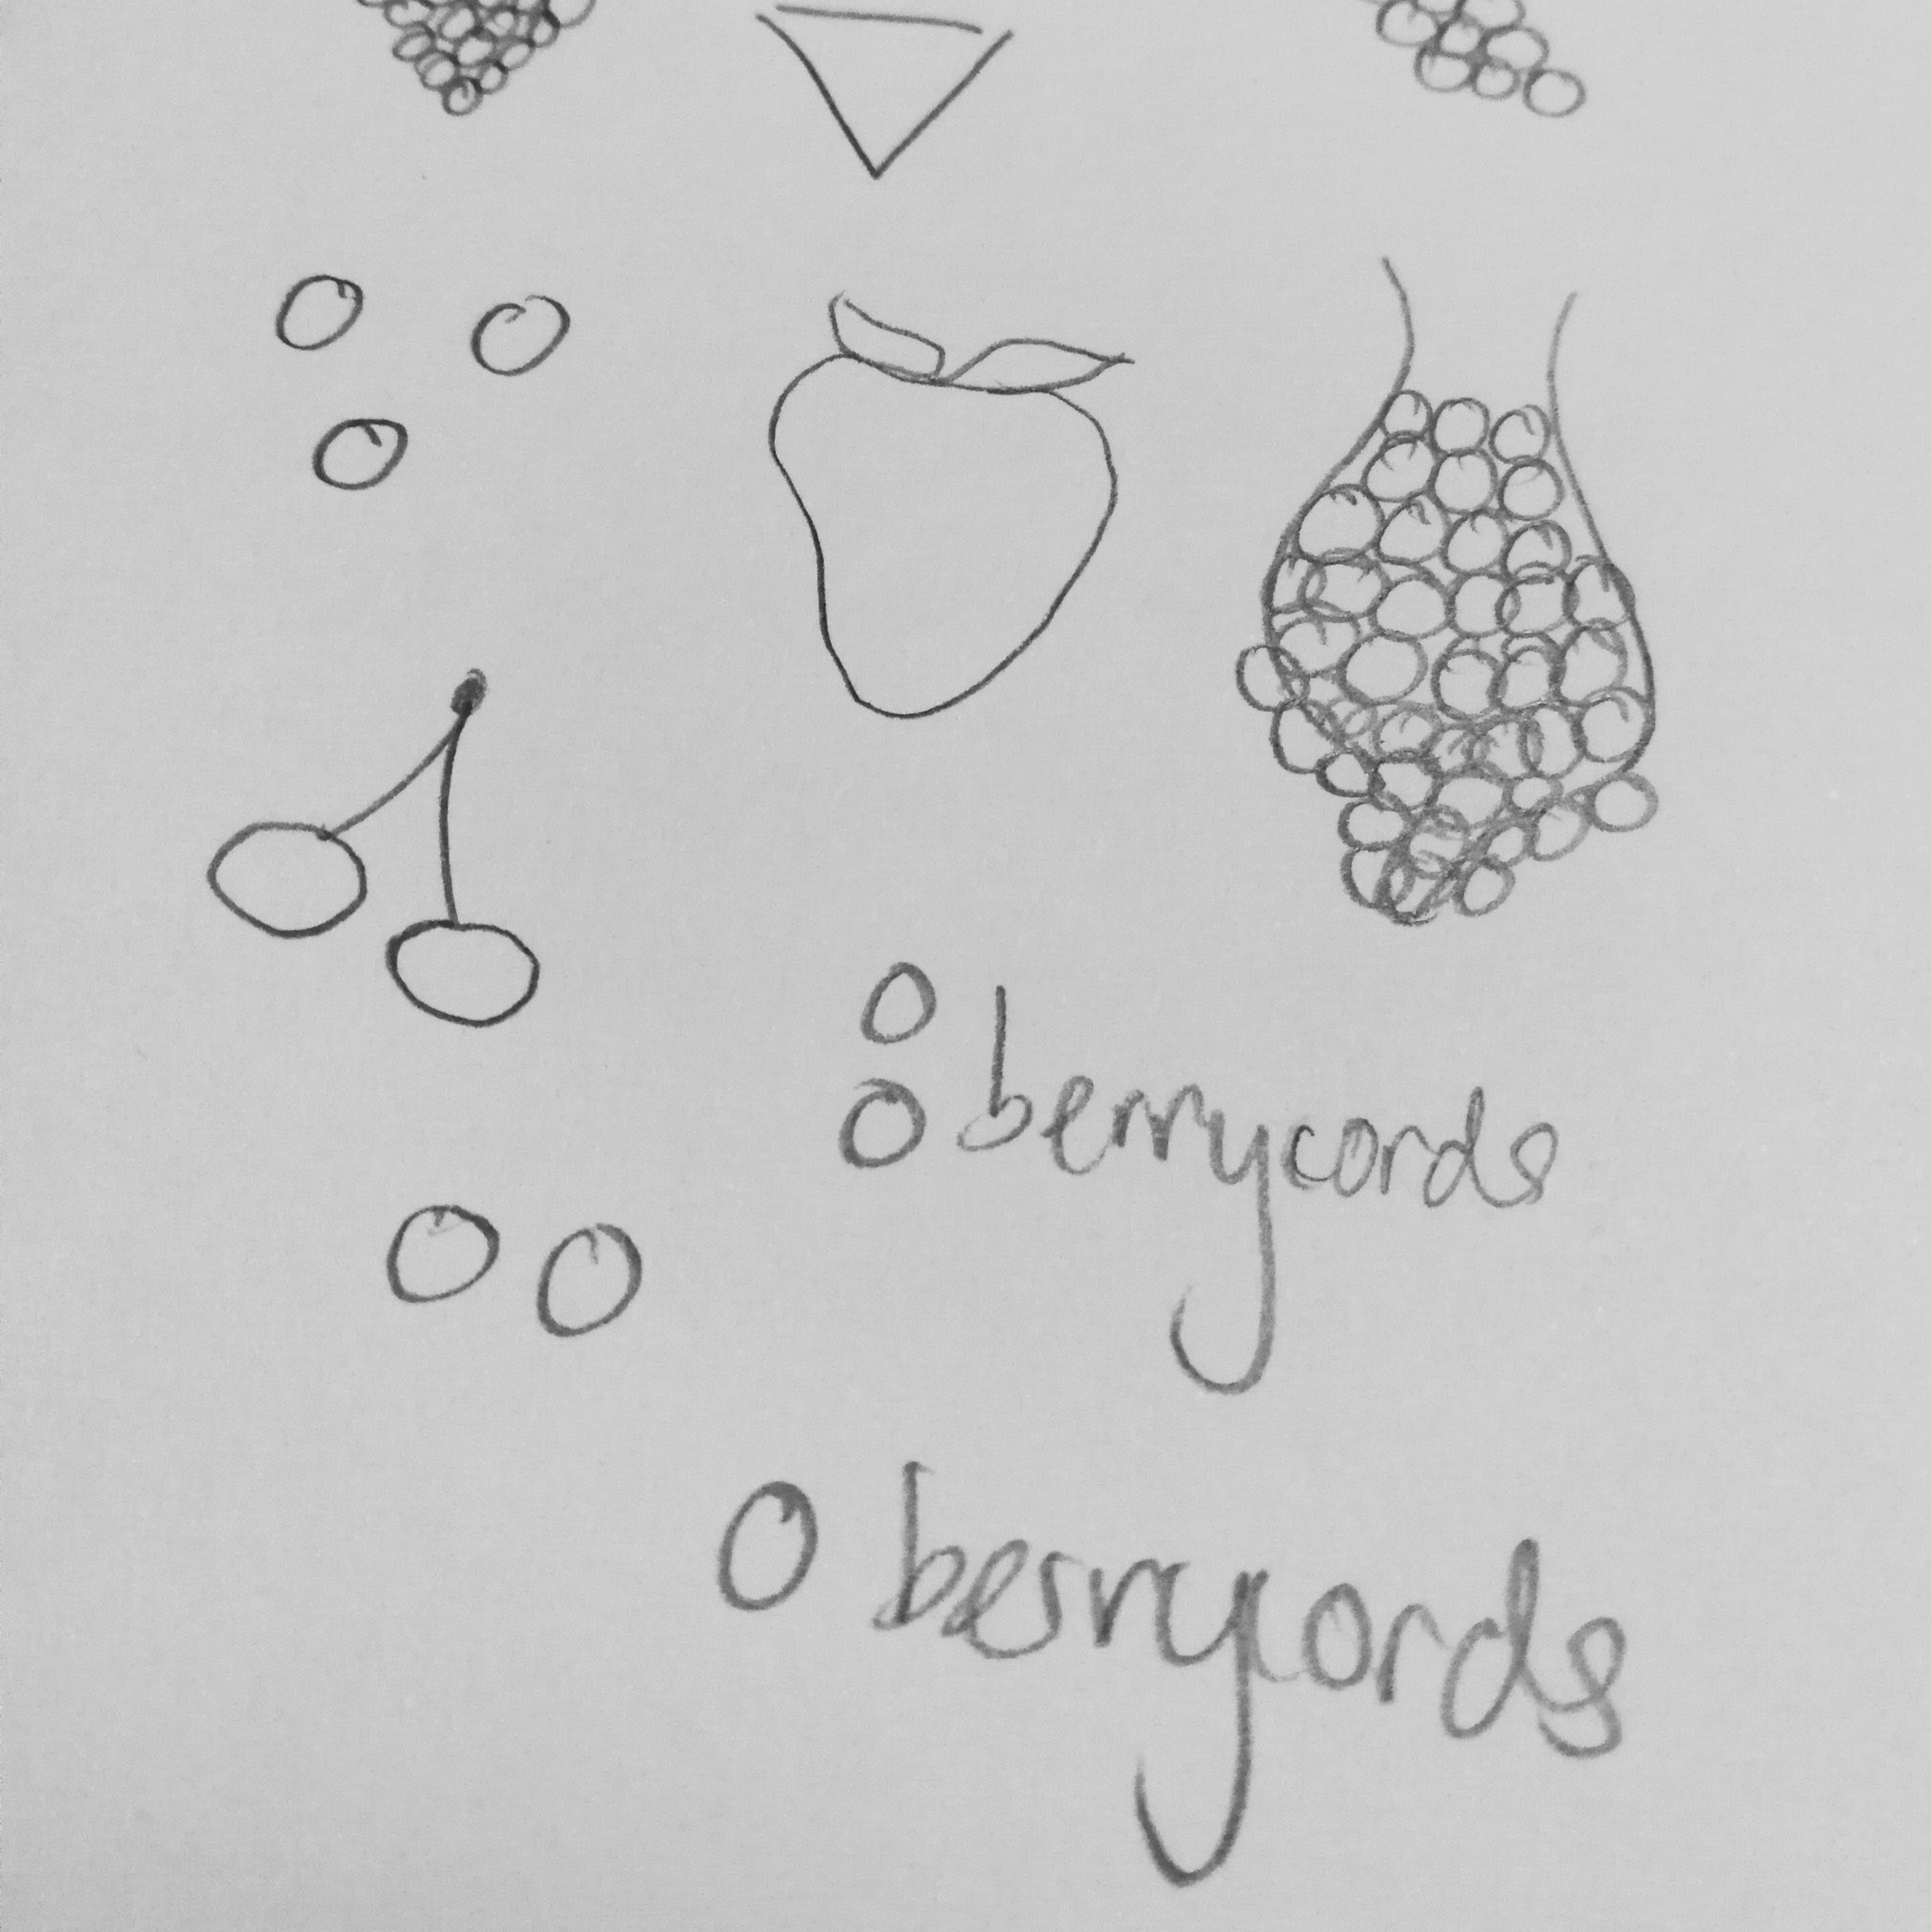 berrycords
berrycords